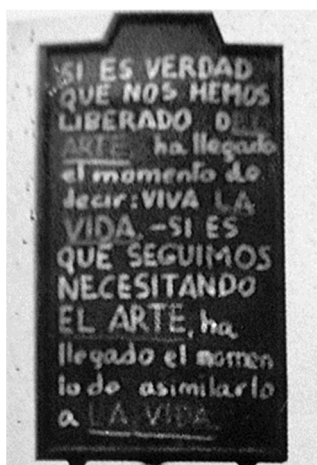 SI ES VERDAD
QUE NOS HEMOS
LIBERADO DEL
ARTE ha llegado
el momento de
decir: VIVA LA
VIDA.-SI ES
QUE SEGUIMOS
NECESITANDO
EL ARTE, ha
llegado el momen
to de asimilarlo
a LA VIDA